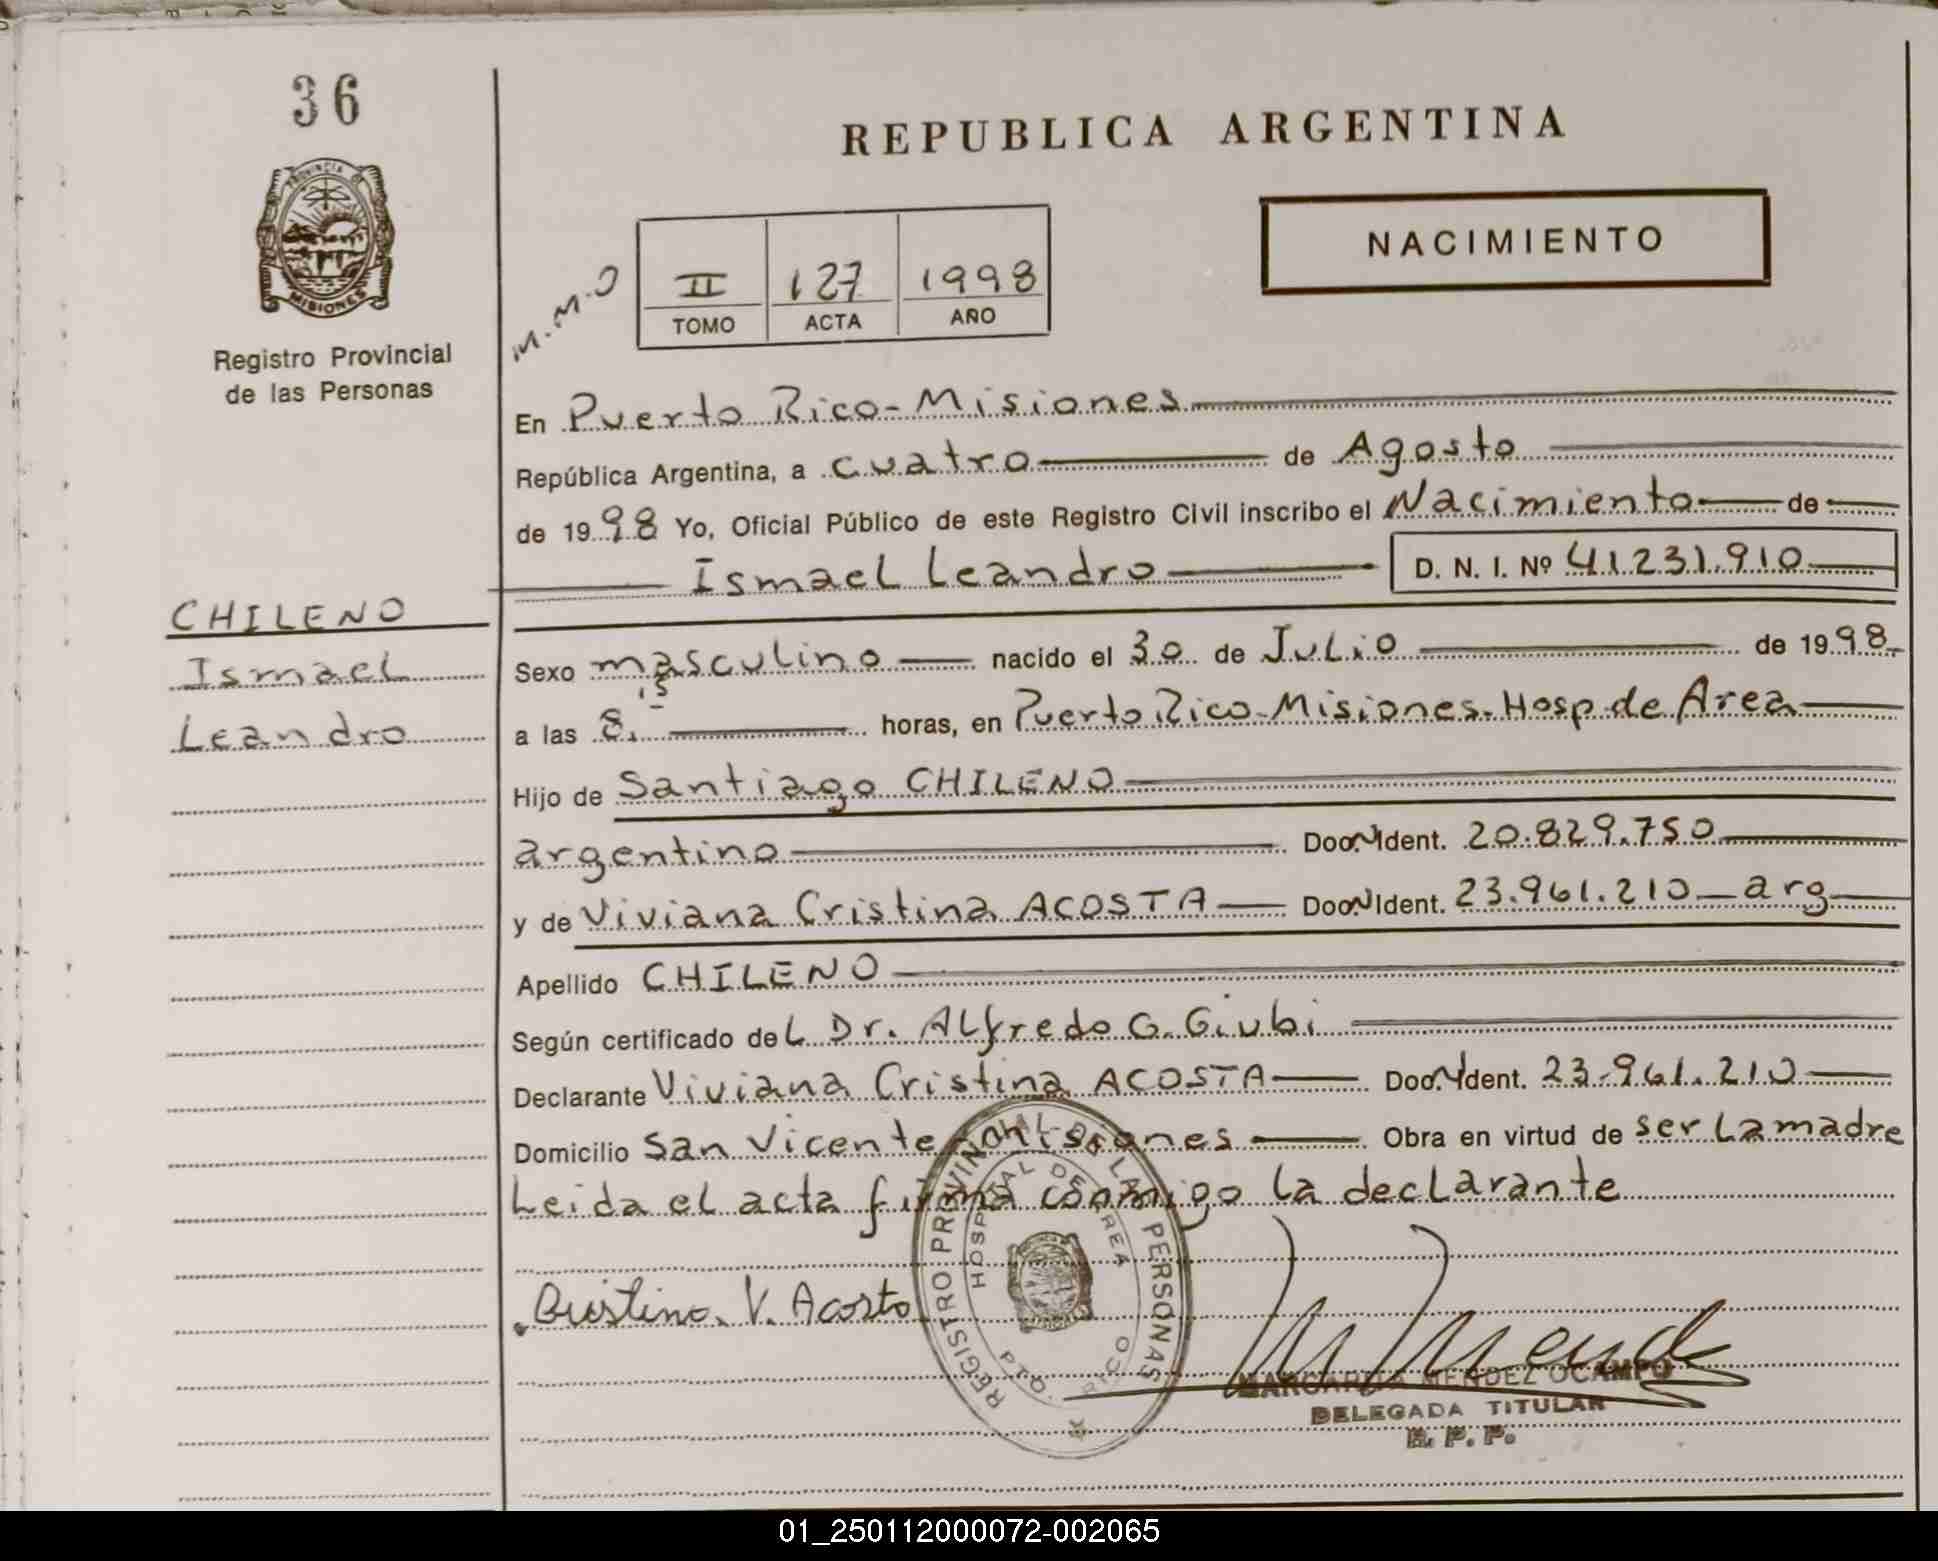 36
PROVINCIA DE
MISIONES
Registro Provincial
de las Personas
REPUBLICA ARGENTINA
NACIMIENTO
M.M.O
II 127 1998
TOMO ACTA AÑO
En Puerto Rico - Misiones
República Argentina, a cuatro de Agosto
de 1998 Yo, Oficial Público de este Registro Civil inscribo el Nacimiento de
Ismael Leandro D. N. I. Nº 41.231.910
CHILENO
Ismael
Leandro
Sexo masculino nacido el 30 de Julio de 1998
a las 8,15 horas, en Puerto Rico - Misiones - Hosp. de Area
Hijo de Santiago CHILENO
argentino Doc. N Ident. 20.829.750
y de Viviana Cristina ACOSTA Doc. N Ident. 23.961.210 - arg
Apellido CHILENO
Según certificado del Dr. Alfredo G. Giubi
Declarante Viviana Cristina ACOSTA Doc. N Ident. 23.961.210
Domicilio San Vicente Misiones Obra en virtud de ser la madre
Leida el acta firma conmigo la declarante
Cristina V. Acosta
REGISTRO PROVINCIAL DE LAS PERSONAS
HOSPITAL DE AREA
PTO. RICO
MARGARITA MENDEZ OCAMPO
DELEGADA TITULAR
R. P. P.
01_250112000072-002065